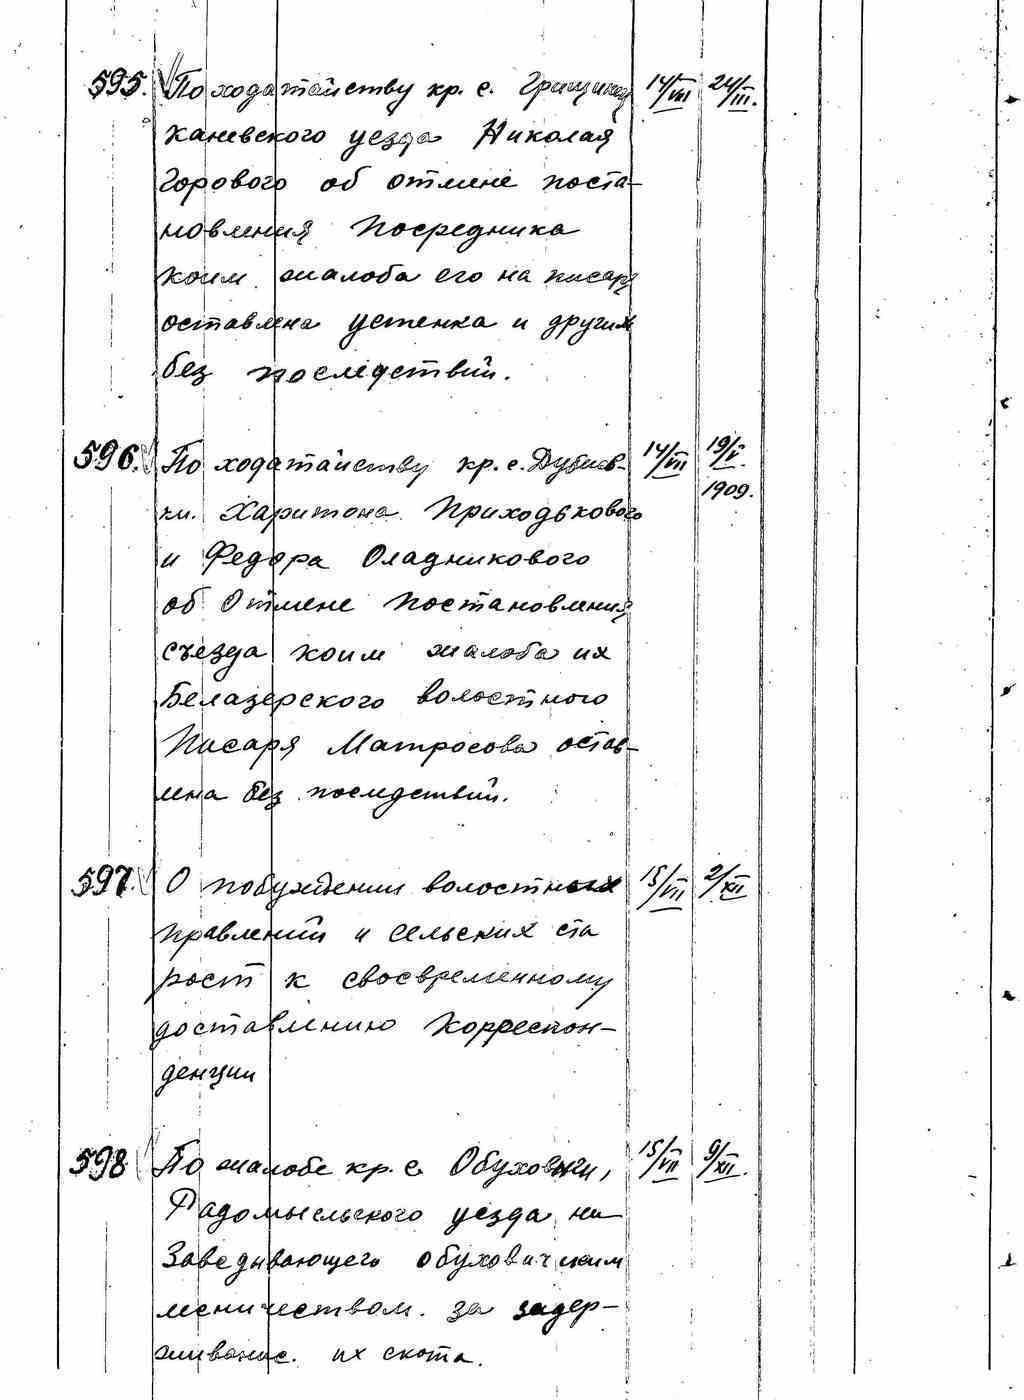 595. По ходатайству кр. с. Грищинец 14/VIII 24/III.
Каневского уезда Николая
Горового об отмене поста-
новления Посредника
коим жалоба его на писаря
оставлена Устенка и других
без последствий.
596. По ходатайству кр. с. Дубиев- 14/VII 19/V.
ки. Харитона Приходькового 1909.
и Федора Оладникового
об Отмене Постановления
съезда коим жалоба их
Белазерского волостного
Писаря Матросова остав-
лена без последствий.
597. О побуждении волостных 15/VII 2/XII
правлений и сельских ста
рост к своевременному
доставлению Корреспон-
денции
598 По жалобе кр. с. Обуховичи, 15/VII 9/XII.
Радомысльского уезда на
Заведывающего обуховичским
лесничеством. за задер-
живание. их скота.